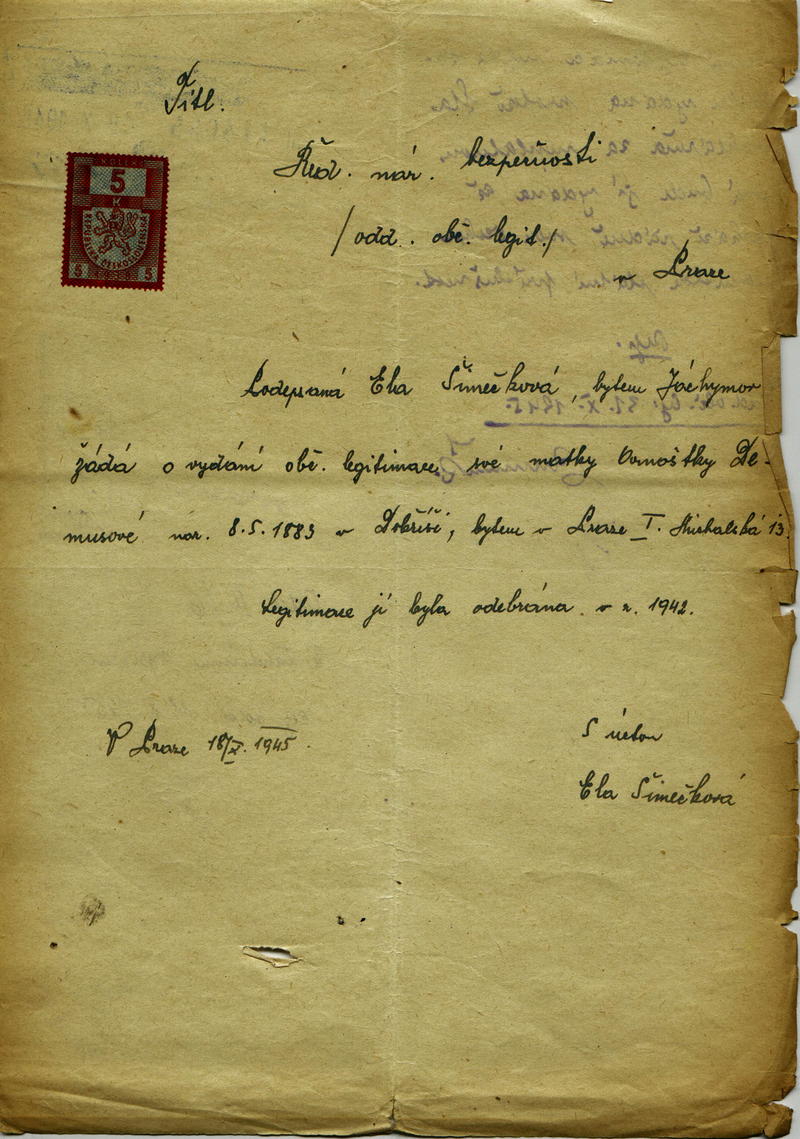 Titl.
Řed. nár. bezpečnosti
/odd. obč. legit./
v Praze
KOLEK
5
K
REPUBLIKA ČESKOSLOVENSKÁ
5 5
Podepsaná Ela Šimečková, bytem Jáchymov
žádá o vydání obč. legitimace své matky Arnoštky De-
musové nar. 8.5.1883 v Dobříši, bytem v Praze I. Michalská 13.
Legitimace jí byla odebrána v r. 1942.
V Praze 18/X. 1945.
S úctou
Ela Šimečková